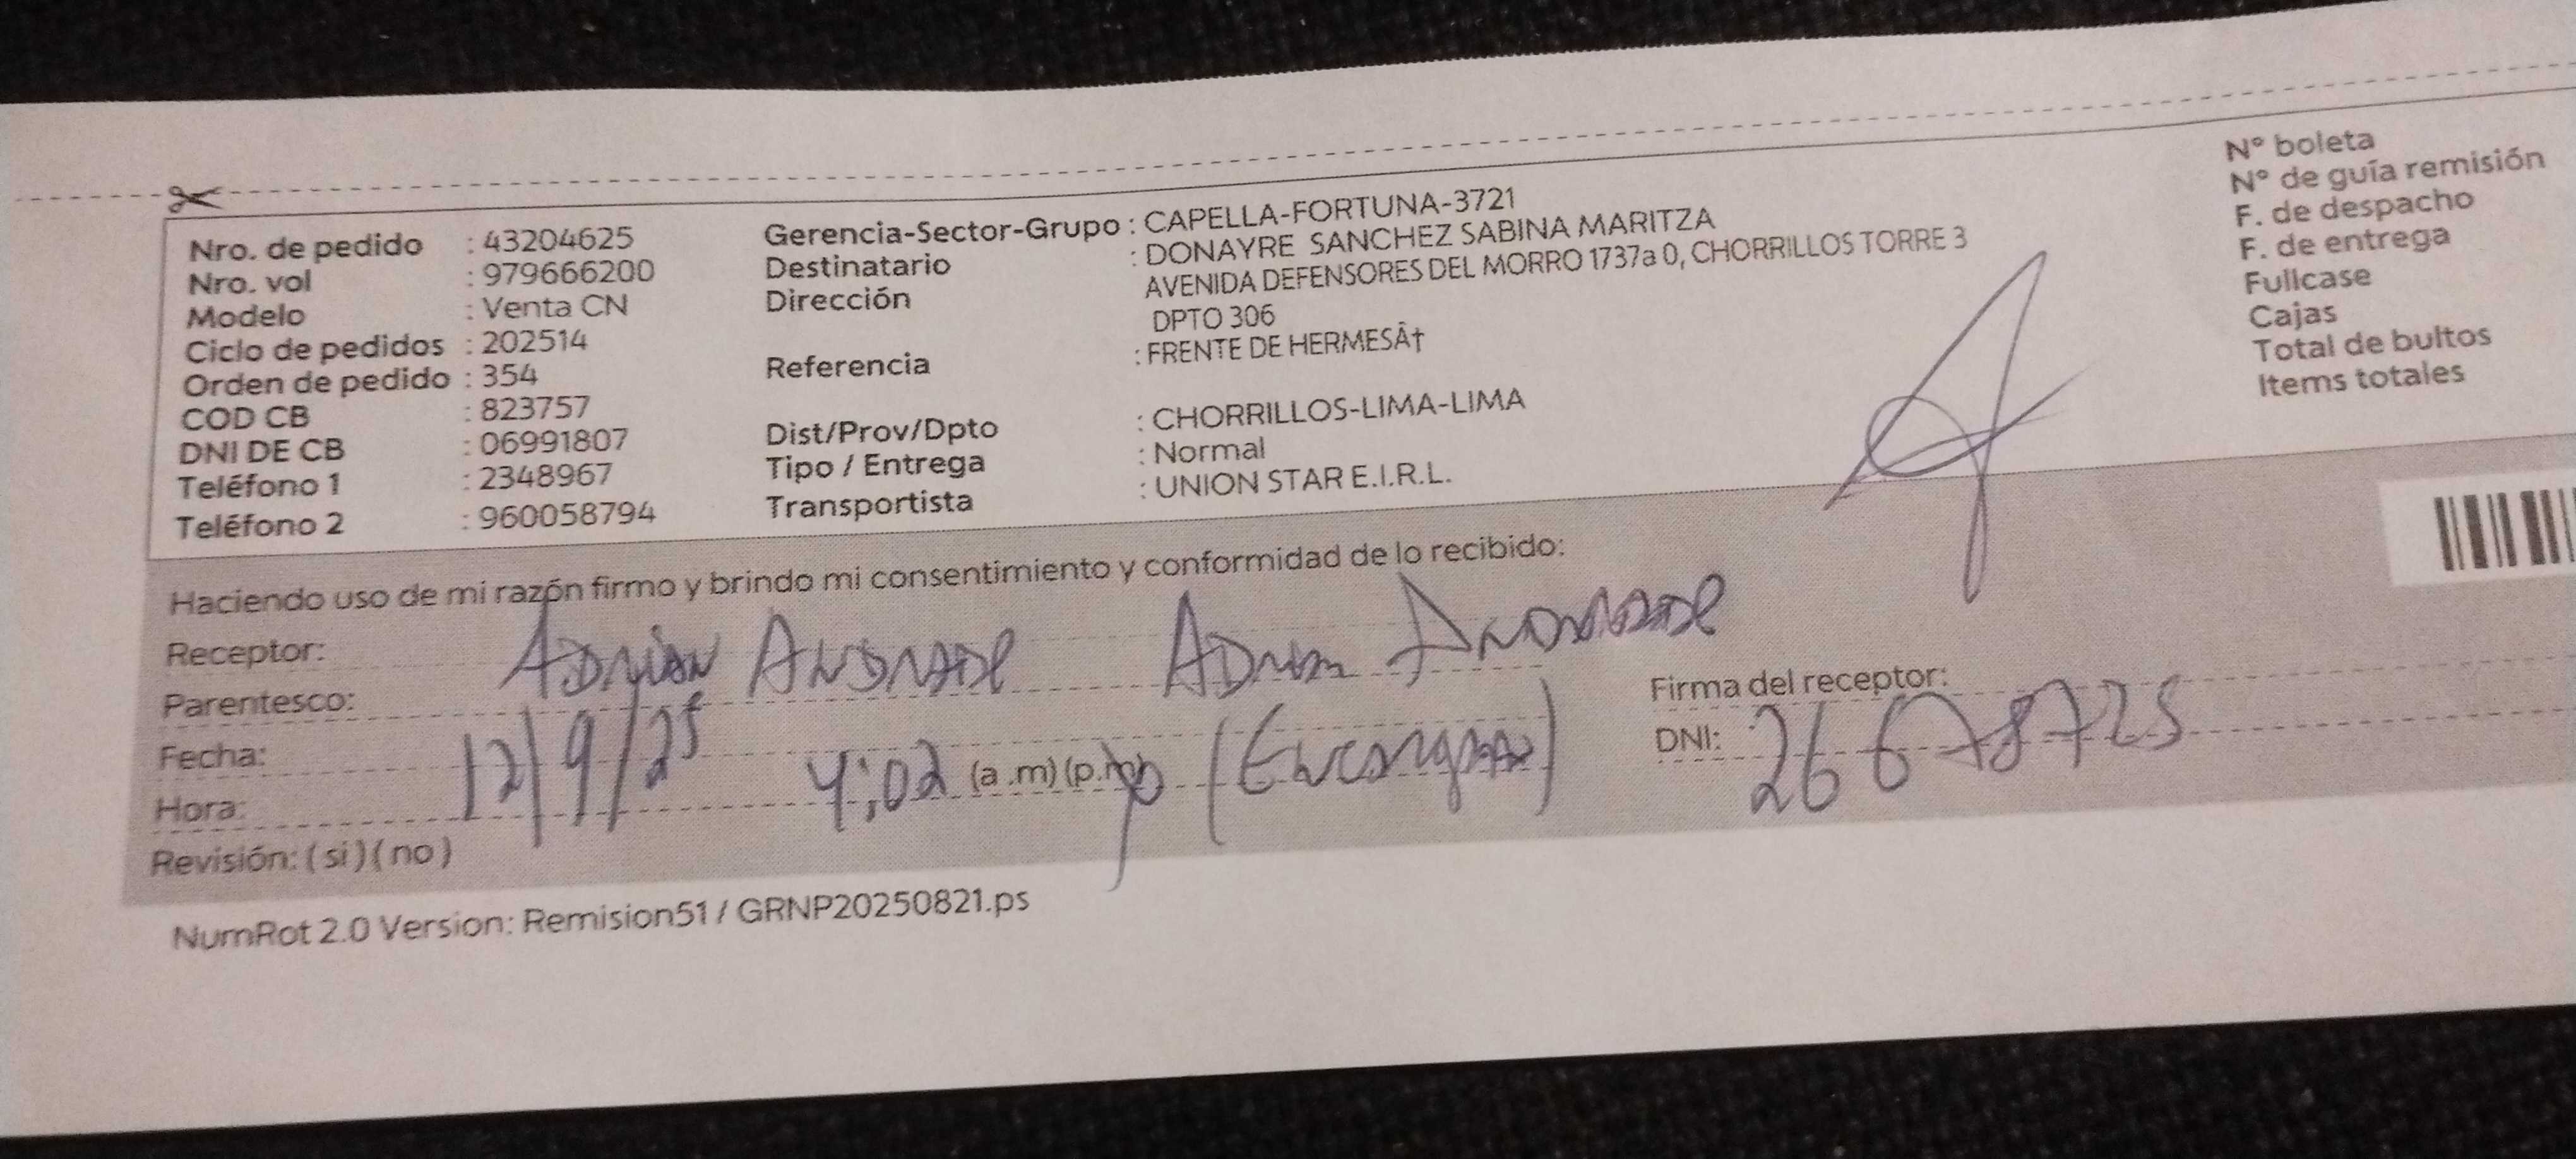 Nro. de pedido : 43204625
Nro. vol : 979666200
Modelo : Venta CN
Ciclo de pedidos : 202514
Orden de pedido : 354
COD CB : 823757
DNI DE CB : 06991807
Teléfono 1 : 2348967
Teléfono 2 : 960058794
Gerencia-Sector-Grupo : CAPELLA-FORTUNA-3721
Destinatario : DONAYRE SANCHEZ SABINA MARITZA
Dirección AVENIDA DEFENSORES DEL MORRO 1737a 0, CHORRILLOS TORRE 3
DPTO 306
Referencia : FRENTE DE HERMESÂ†
Dist/Prov/Dpto : CHORRILLOS-LIMA-LIMA
Tipo / Entrega : Normal
Transportista : UNION STAR E.I.R.L.
N° boleta
N° de guía remisión
F. de despacho
F. de entrega
Fullcase
Cajas
Total de bultos
Items totales
Haciendo uso de mi razón firmo y brindo mi consentimiento y conformidad de lo recibido:
Receptor: Adrian Andrade Adrian Andrade
Parentesco:
Fecha: 12/9/25
Hora: 4:02 (a.m) (p.m)
Revisión: ( si ) ( no )
Firma del receptor:
DNI:
NumRot 2.0 Version: Remision51 / GRNP20250821.ps